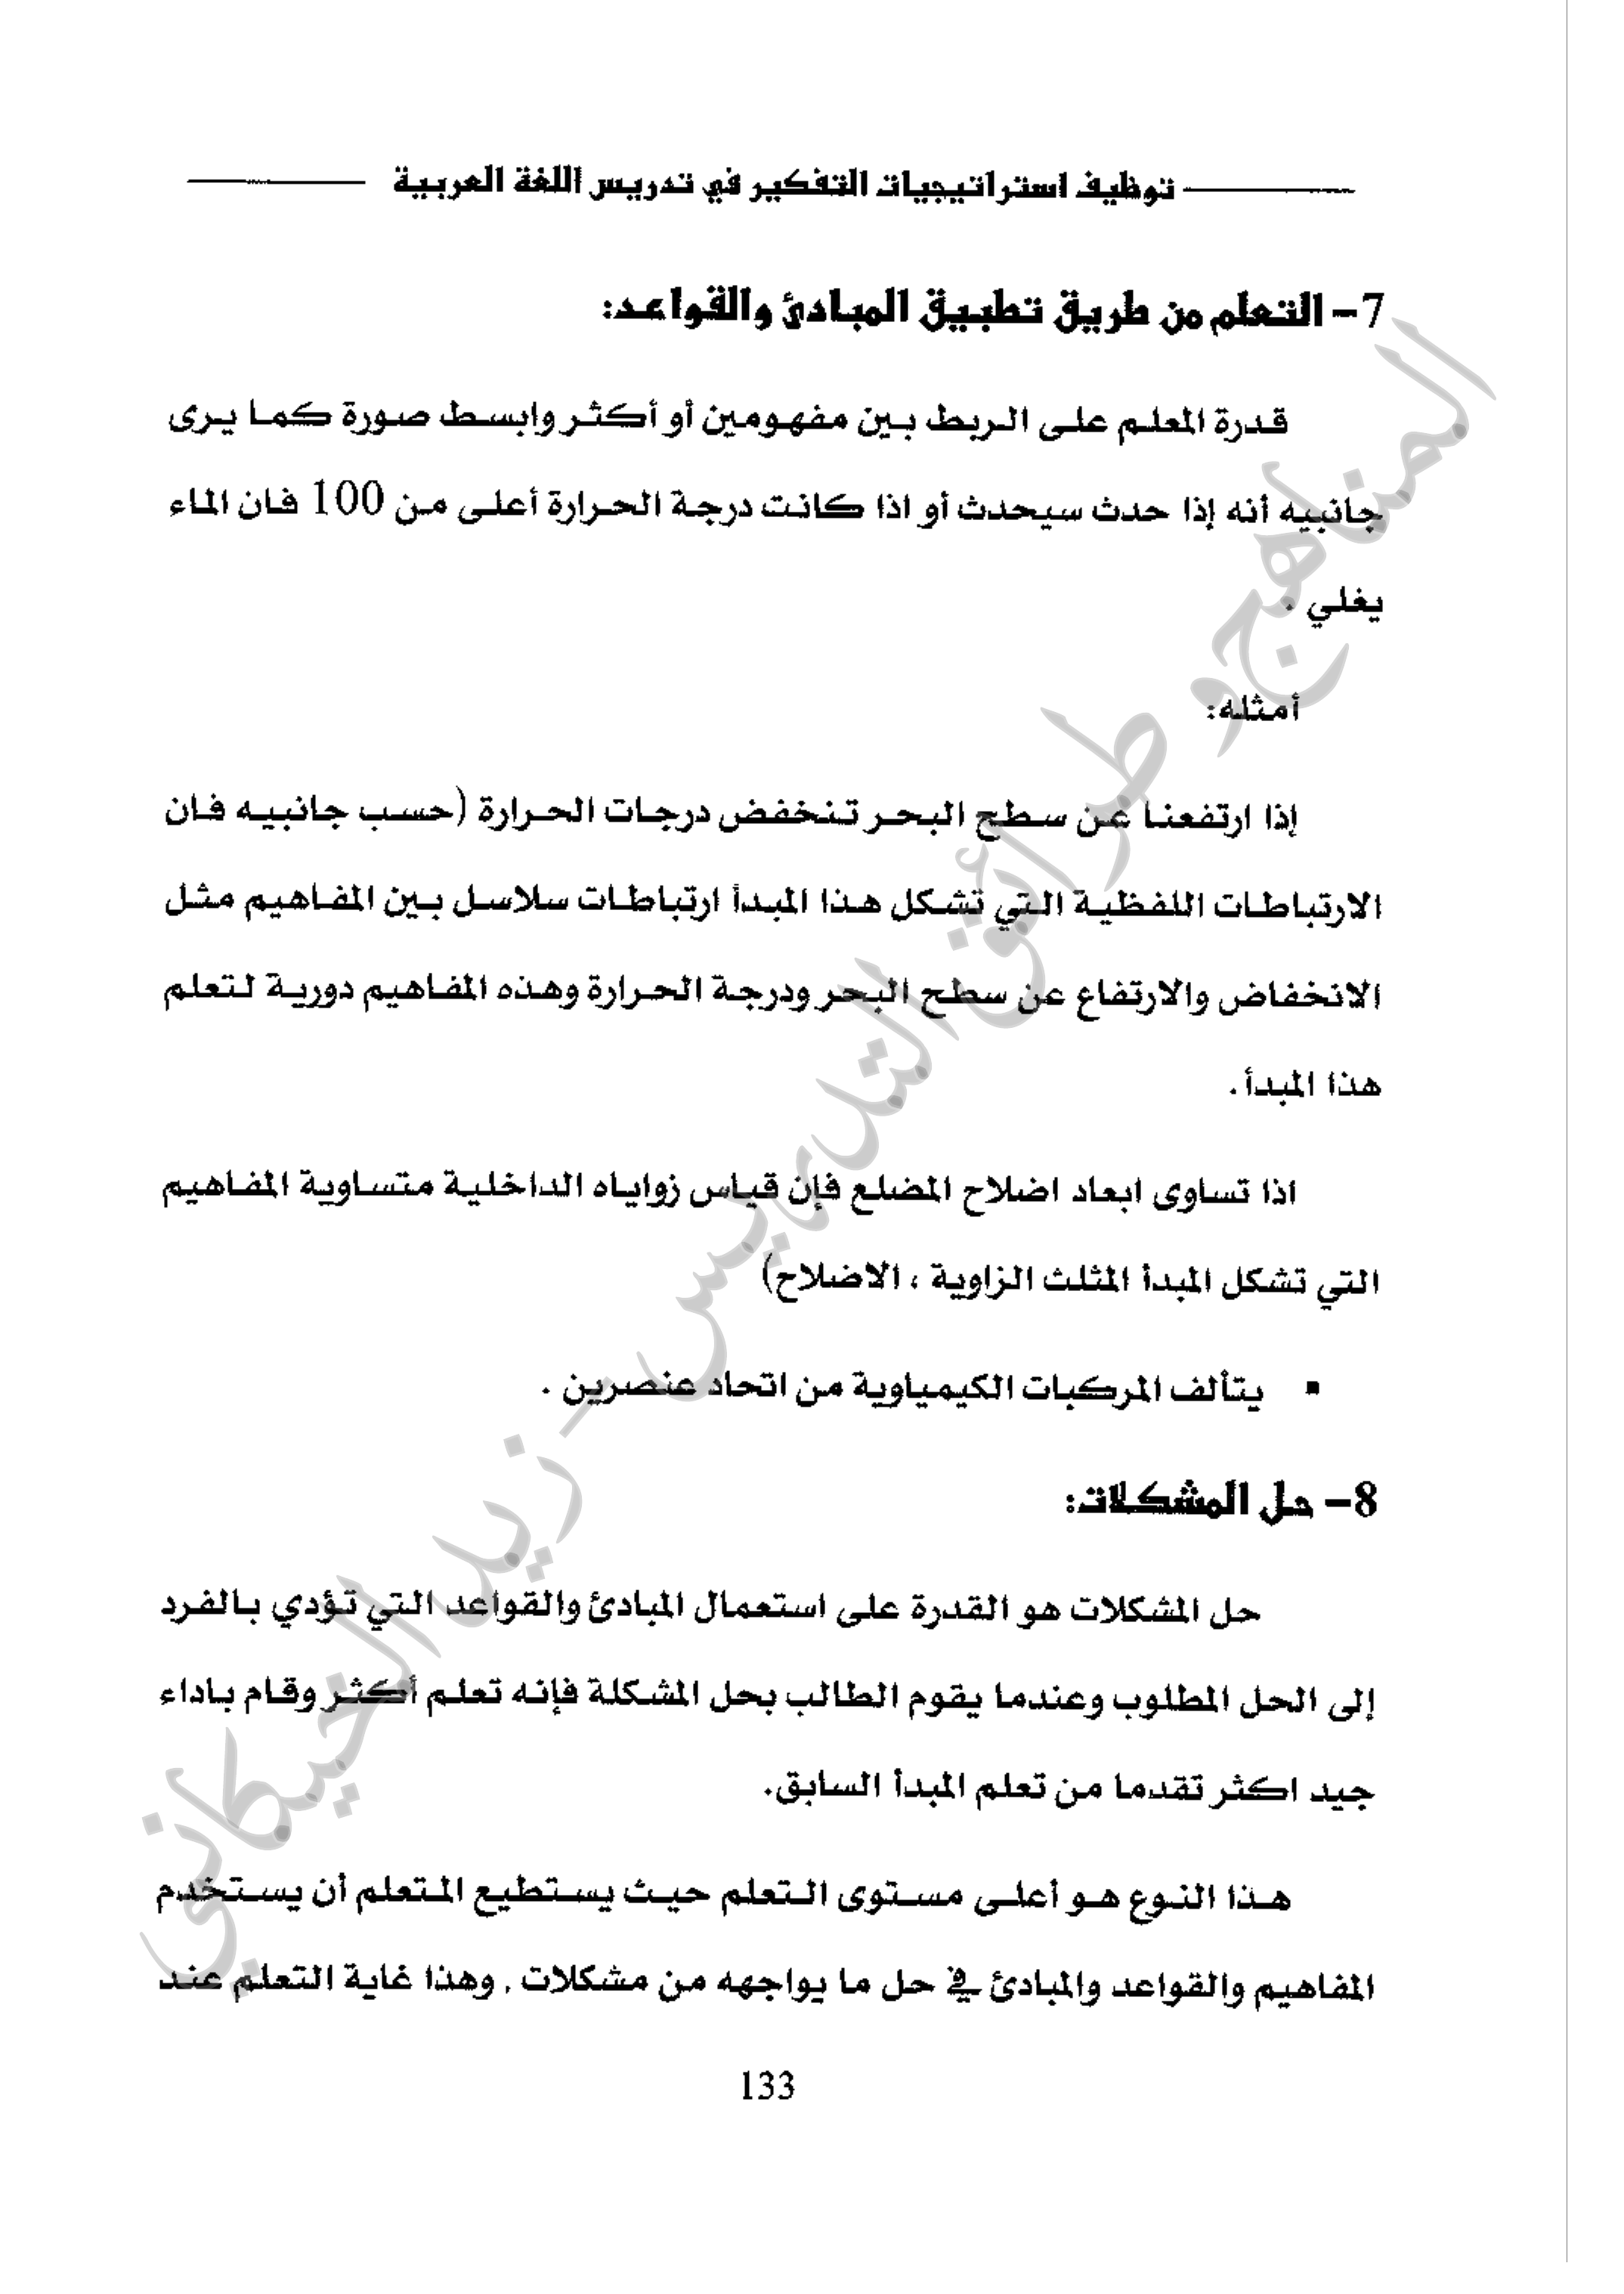 توظيف استراتيجيات التفكير في تدريس اللغة العربية
7- التعلم من طريق تطبيق المبادئ والقواعد:
قدرة المعلم على الربط بين مفهومين أو أكثر وابسط صورة كما يرى
جانبيه أنه إذا حدث سيحدث أو اذا كانت درجة الحرارة أعلى من 100 فان الماء
يغلي .
أمثله:
إذا ارتفعنا عن سطح البحر تنخفض درجات الحرارة (حسب جانبيه فان
الارتباطات اللفظية التي تشكل هذا المبدأ ارتباطات سلاسل بين المفاهيم مثل
الانخفاض والارتفاع عن سطح البحر ودرجة الحرارة وهذه المفاهيم دورية لتعلم
هذا المبدأ.
اذا تساوى ابعاد اضلاح المضلع فإن قياس زواياه الداخلية متساوية المفاهيم
التي تشكل المبدأ المثلث الزاوية ، الاضلاح)
▪ يتألف المركبات الكيمياوية من اتحاد عنصرين .
8- حل المشكلات:
حل المشكلات هو القدرة على استعمال المبادئ والقواعد التي تؤدي بالفرد
إلى الحل المطلوب وعندما يقوم الطالب بحل المشكلة فإنه تعلم أكثر وقام باداء
جيد اكثر تقدما من تعلم المبدأ السابق.
هذا النوع هو أعلى مستوى التعلم حيث يستطيع المتعلم أن يستخدم
المفاهيم والقواعد والمبادئ في حل ما يواجهه من مشكلات , وهذا غاية التعلم عند
133
المناهج وطرائق التدريس - زيد الخيكاني